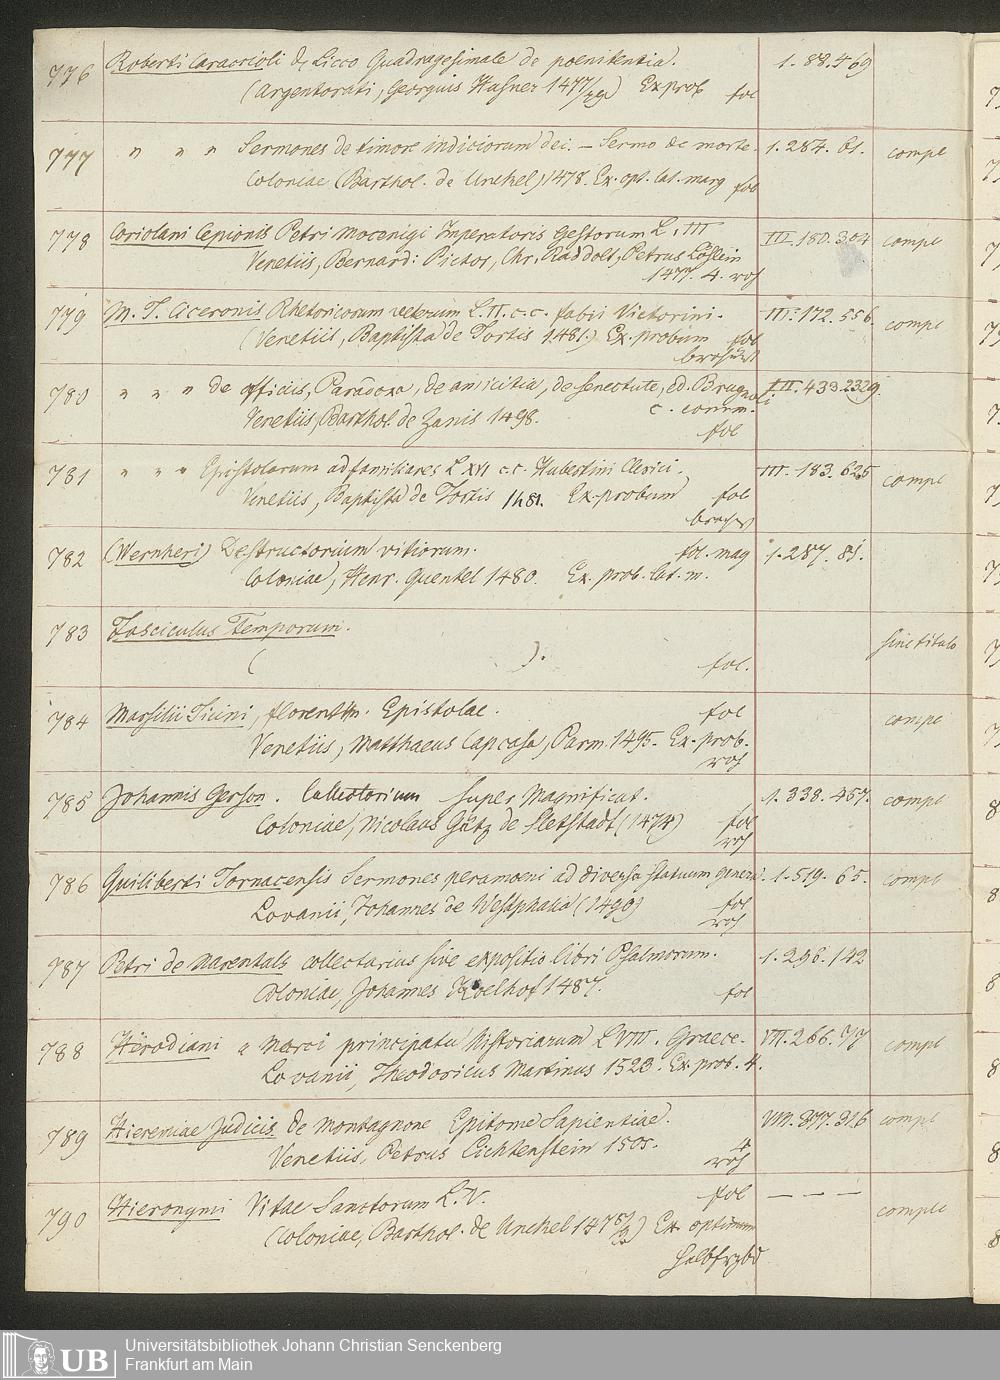 776 Roberti Caraccioli de Licco Quadragesimale de poenitentia. 1. 88. 469
(Argentorati, Georgius Husner 1477) Ex prob fol
777 " " " Sermones de timore iudiciorum dei. — Sermo de morte. 1. 284. 61. compl
Coloniae (Barthol. de Unckel) 1478. Ex. opt. lat. marg fol
778 Coriolani Cepionis Petri Mocenigi Imperatoris gestorum L. III III. 180. 304 compl
Venetiis, Bernard: Pictor, Chr. Raddolt, Petrus Löslein
1477. 4. roh
779 M. T. Ciceronis Rhetoricorum veterum L. II. c. c. fabii Victorini. III. 172. 556. compl
(Venetiis, Baptista de Tortis 1481.) Ex. probum fol
broschirt
780 " " " de officiis, Paradoxa, de amicitia, de senectute, ed. Brugnoli III. 433. 2329.
Venetiis, Barthol. de Zanis 1498. c. comm.
fol
781 " " " Epistolarum ad familiares L XVI c. c. Hubertini Clerici. III. 183. 625 compl
Venetiis, Baptista de Tortis 1481. Ex. probum fol
brosch
782 (Wernheri) Destructorium vitiorum. fol. mag 1. 287. 81.
Coloniae, Henr. Quentel 1480. Ex. prob. lat. m.
783 Fasciculus Temporum. sine titulo
( ). fol.
784 Marsilii Ficini, florentin. Epistolae. fol compl
Venetiis, Matthaeus Capcasa, Parm. 1495. Ex. prob.
roh
785 Johannis Gerson. Collectorium super Magnificat. 1. 338. 457. compl
Coloniae, Nicolaus Götz de Sletstadt (1474) fol
roh
786 Guiliberti Tornacensis Sermones peramoeni ad diversa statuum genera. 1. 519. 65. compl
Lovanii, Johannes de Westphalia (1490) fol
roh
787 Petri de Harentals collectarius sive expositio libri Psalmorum. 1. 296. 142
Coloniae, Johannes Koelhof 1487. fol
788 Herodiani a Marci principatu historiarum L VIII. Graece. VII. 266. 77 compl
Lovanii, Theodoricus Martinus 1523. Ex. prob. 4.
789 Hieremiae Judicis de Montagnone Epitome Sapientiae. VIII. 377. 316 compl
Venetiis, Petrus Lichtenstein 1505. 4
roh
790 Hieronymi Vitae Sanctorum L. V. fol — — — compl
(Coloniae, Barthol. de Unckel) Ex. optimum
Halbfrzbd
UB Universitätsbibliothek Johann Christian Senckenberg
Frankfurt am Main